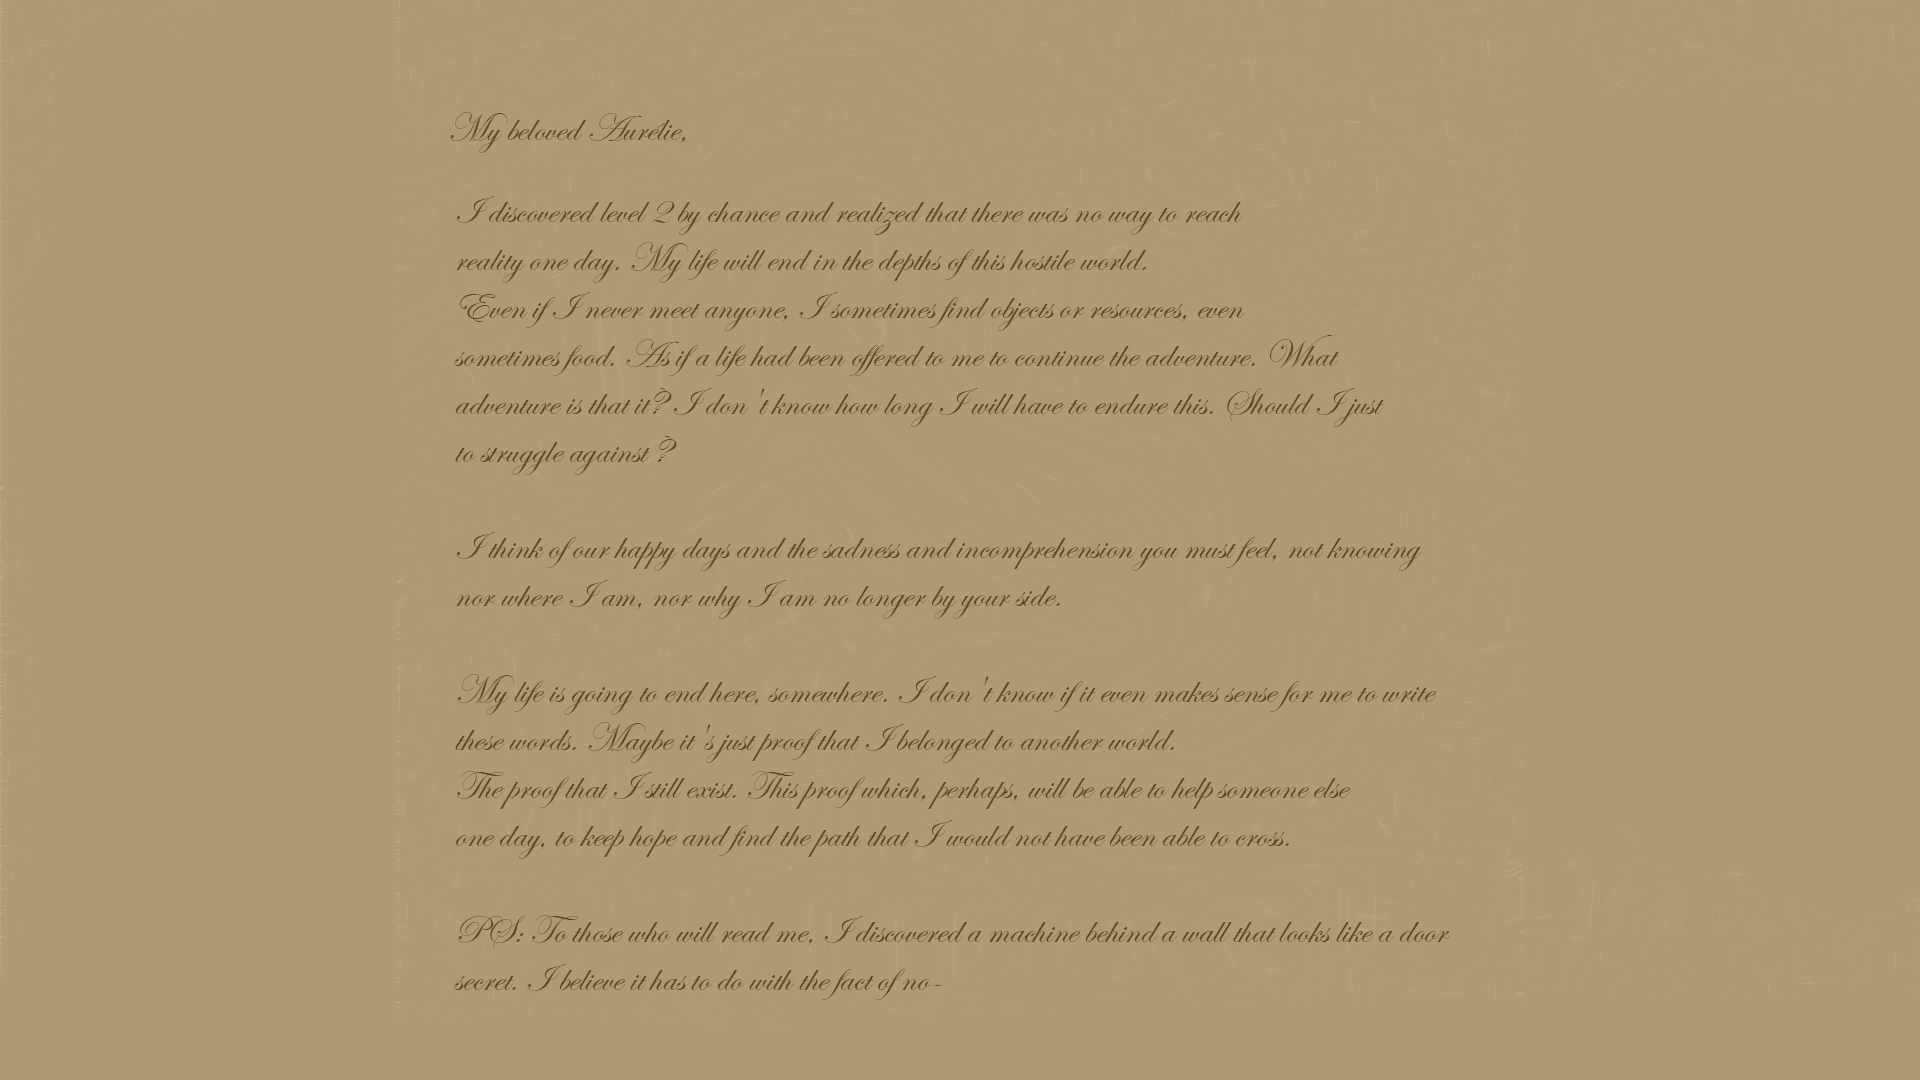 My beloved Aurélie,
I discovered level 2 by chance and realized that there was no way to reach
reality one day. My life will end in the depths of this hostile world.
Even if I never meet anyone, I sometimes find objects or resources, even
sometimes food. As if a life had been offered to me to continue the adventure. What
adventure is that it? I don't know how long I will have to endure this. Should I just
to struggle against ?
I think of our happy days and the sadness and incomprehension you must feel, not knowing
nor where I am, nor why I am no longer by your side.
My life is going to end here, somewhere. I don't know if it even makes sense for me to write
these words. Maybe it's just proof that I belonged to another world.
The proof that I still exist. This proof which, perhaps, will be able to help someone else
one day, to keep hope and find the path that I would not have been able to cross.
PS: To those who will read me, I discovered a machine behind a wall that looks like a door
secret. I believe it has to do with the fact of no-